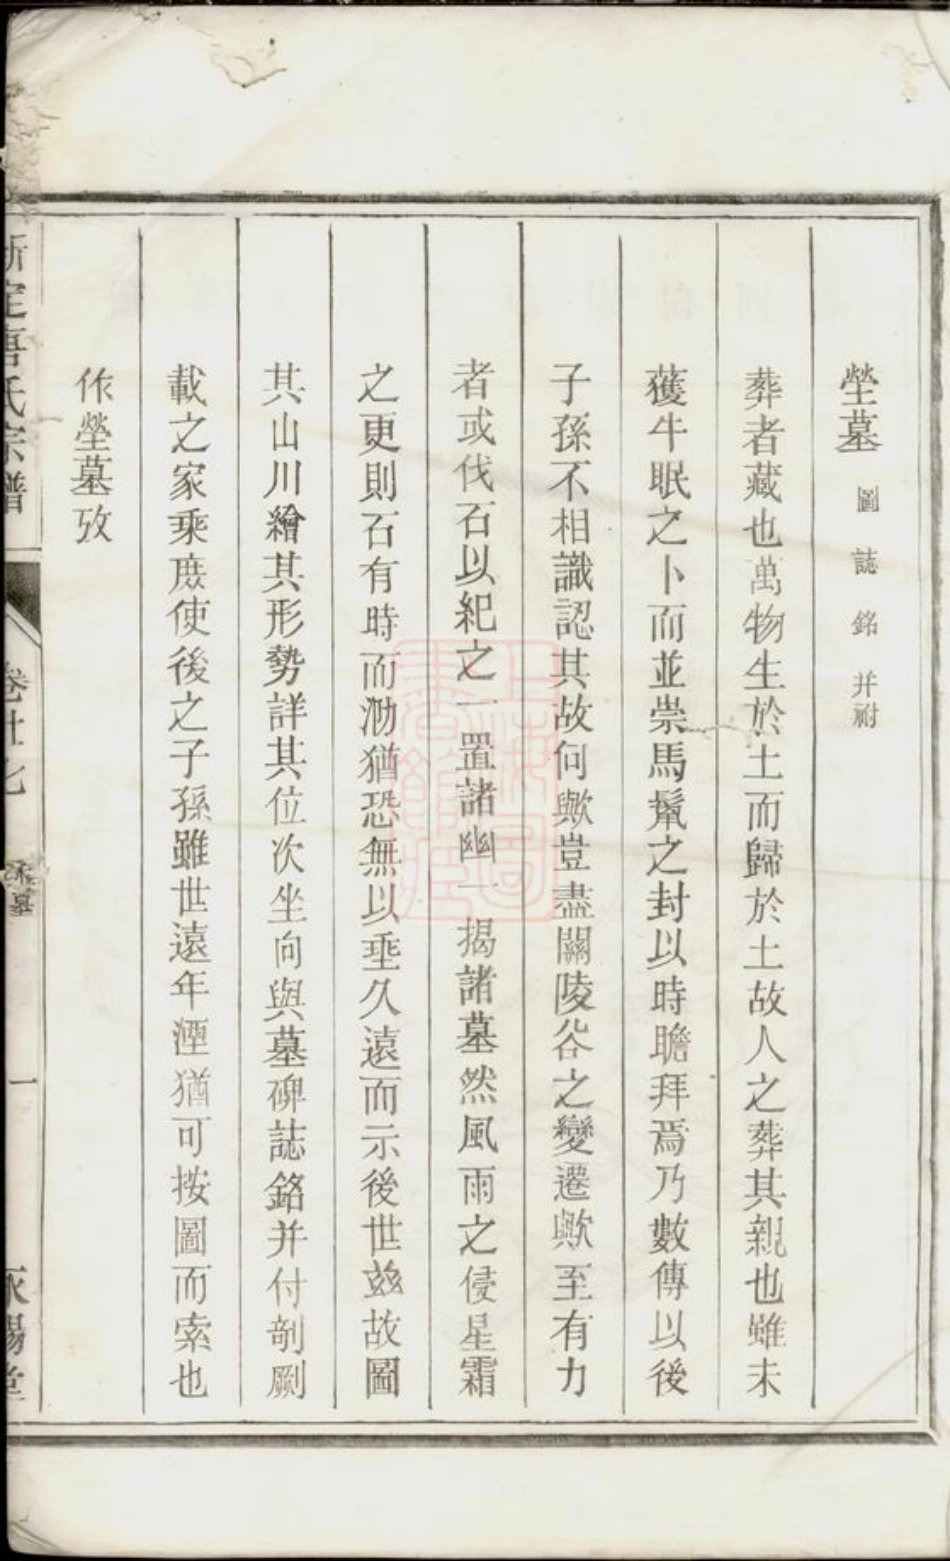 塋墓 圖誌銘并祔
葬者藏也萬物生於土而歸於土故人之葬其親也雖未
獲牛眠之卜而並崇馬鬣之封以時瞻拜焉乃數傳以後
子孫不相識認其故何歟豈盡關陵谷之變遷歟至有力
者或伐石以紀之一置諸幽一揭諸墓然風雨之侵星霜
之更則石有時而泐猶恐無以垂久遠而示後世玆故圖
其山川繪其形勢詳其位次坐向與墓碑誌銘并付剞劂
載之家乘庶使後之子孫雖世遠年湮猶可按圖而索也
作塋墓攷
新定唐氏宗譜 卷廿七 墓 一 錫堂
上海圖書館藏